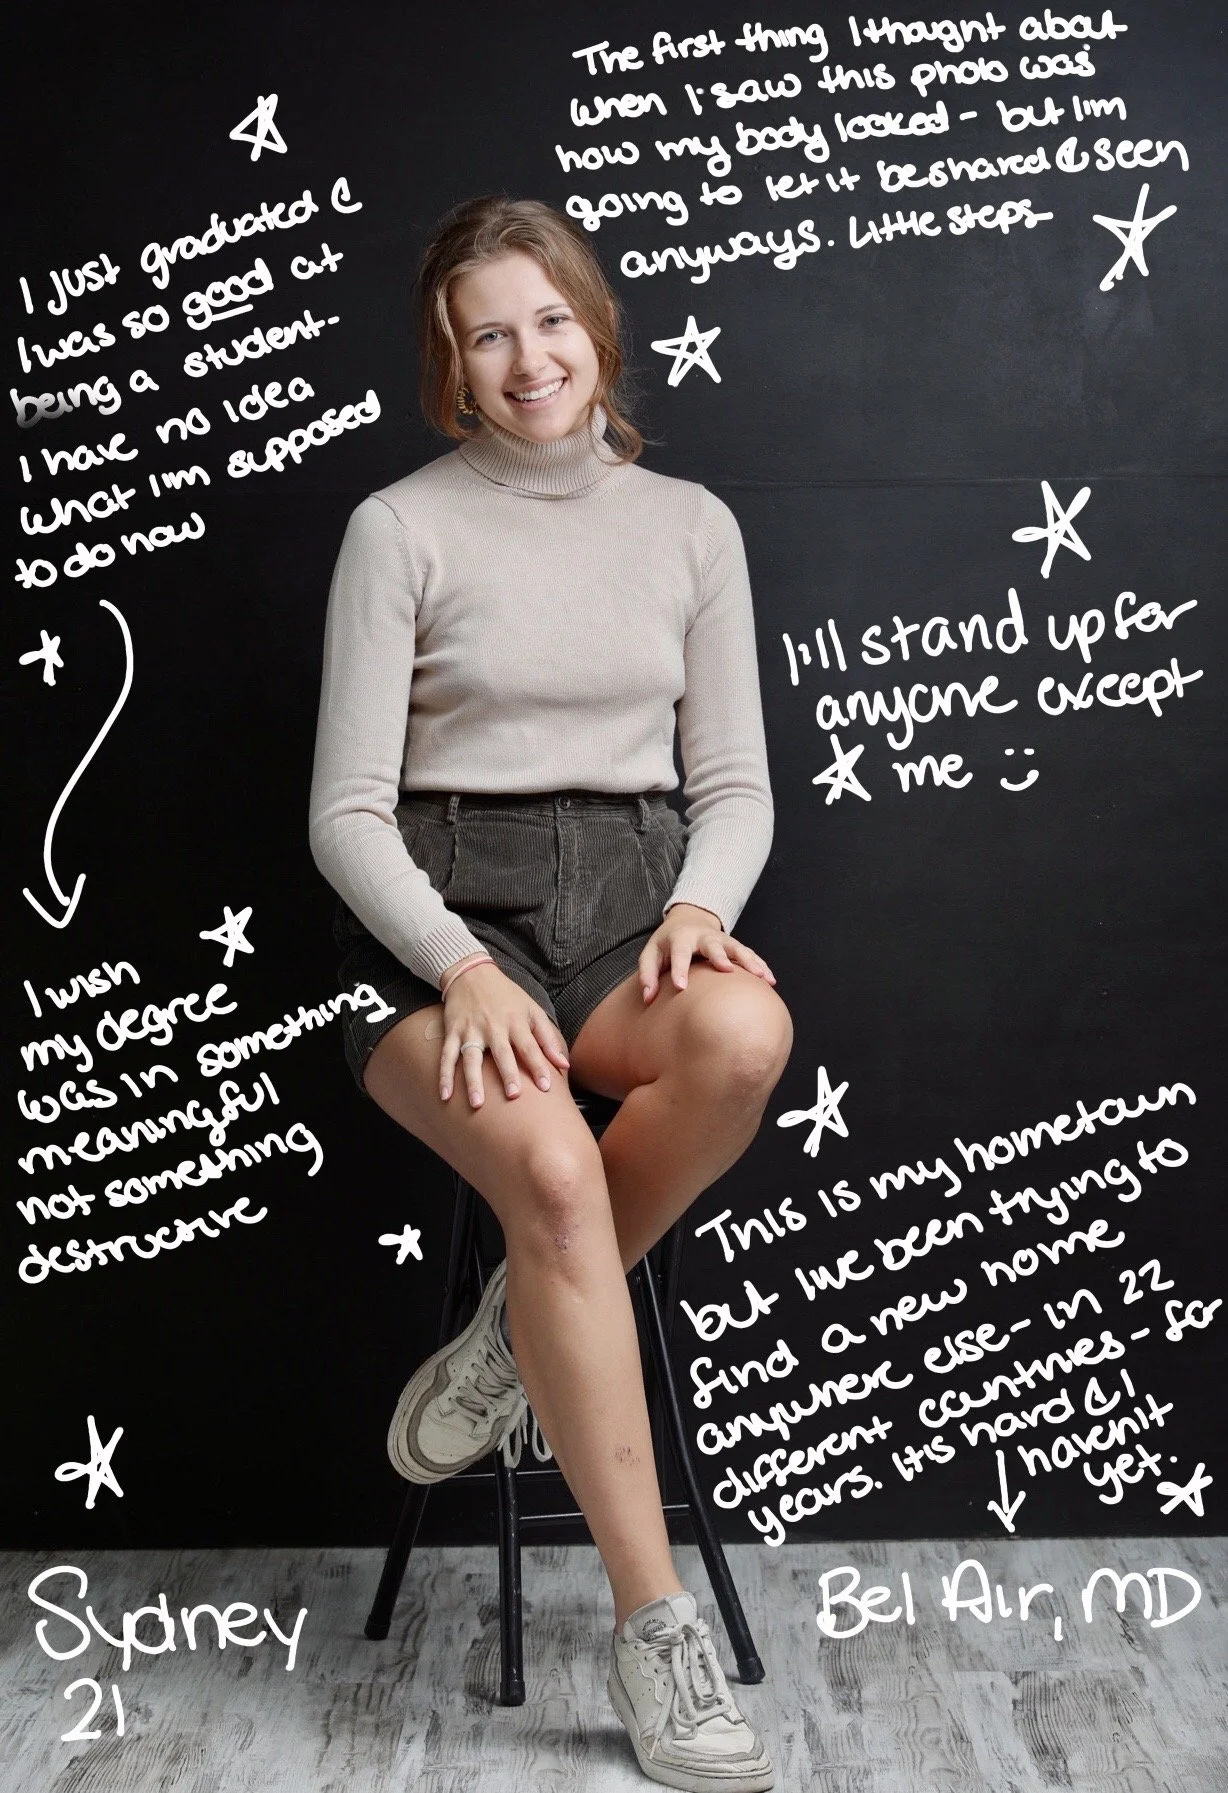 The first thing I thought about
when I saw this photo was
how my body looked - but I'm
going to let it be shared & seen
anyways. Little steps
I just graduated &
I was so good at
being a student-
I have no idea
what I'm supposed
to do now
I'll stand up for
anyone except
me :)
I wish
my degree
was in something
meaningful
not something
destructive
This is my hometown
but I've been trying to
find a new home
anywhere else - in 22
different countries - for
years. It is hard & I
haven't
yet.
Sydney
21
Bel Air, MD